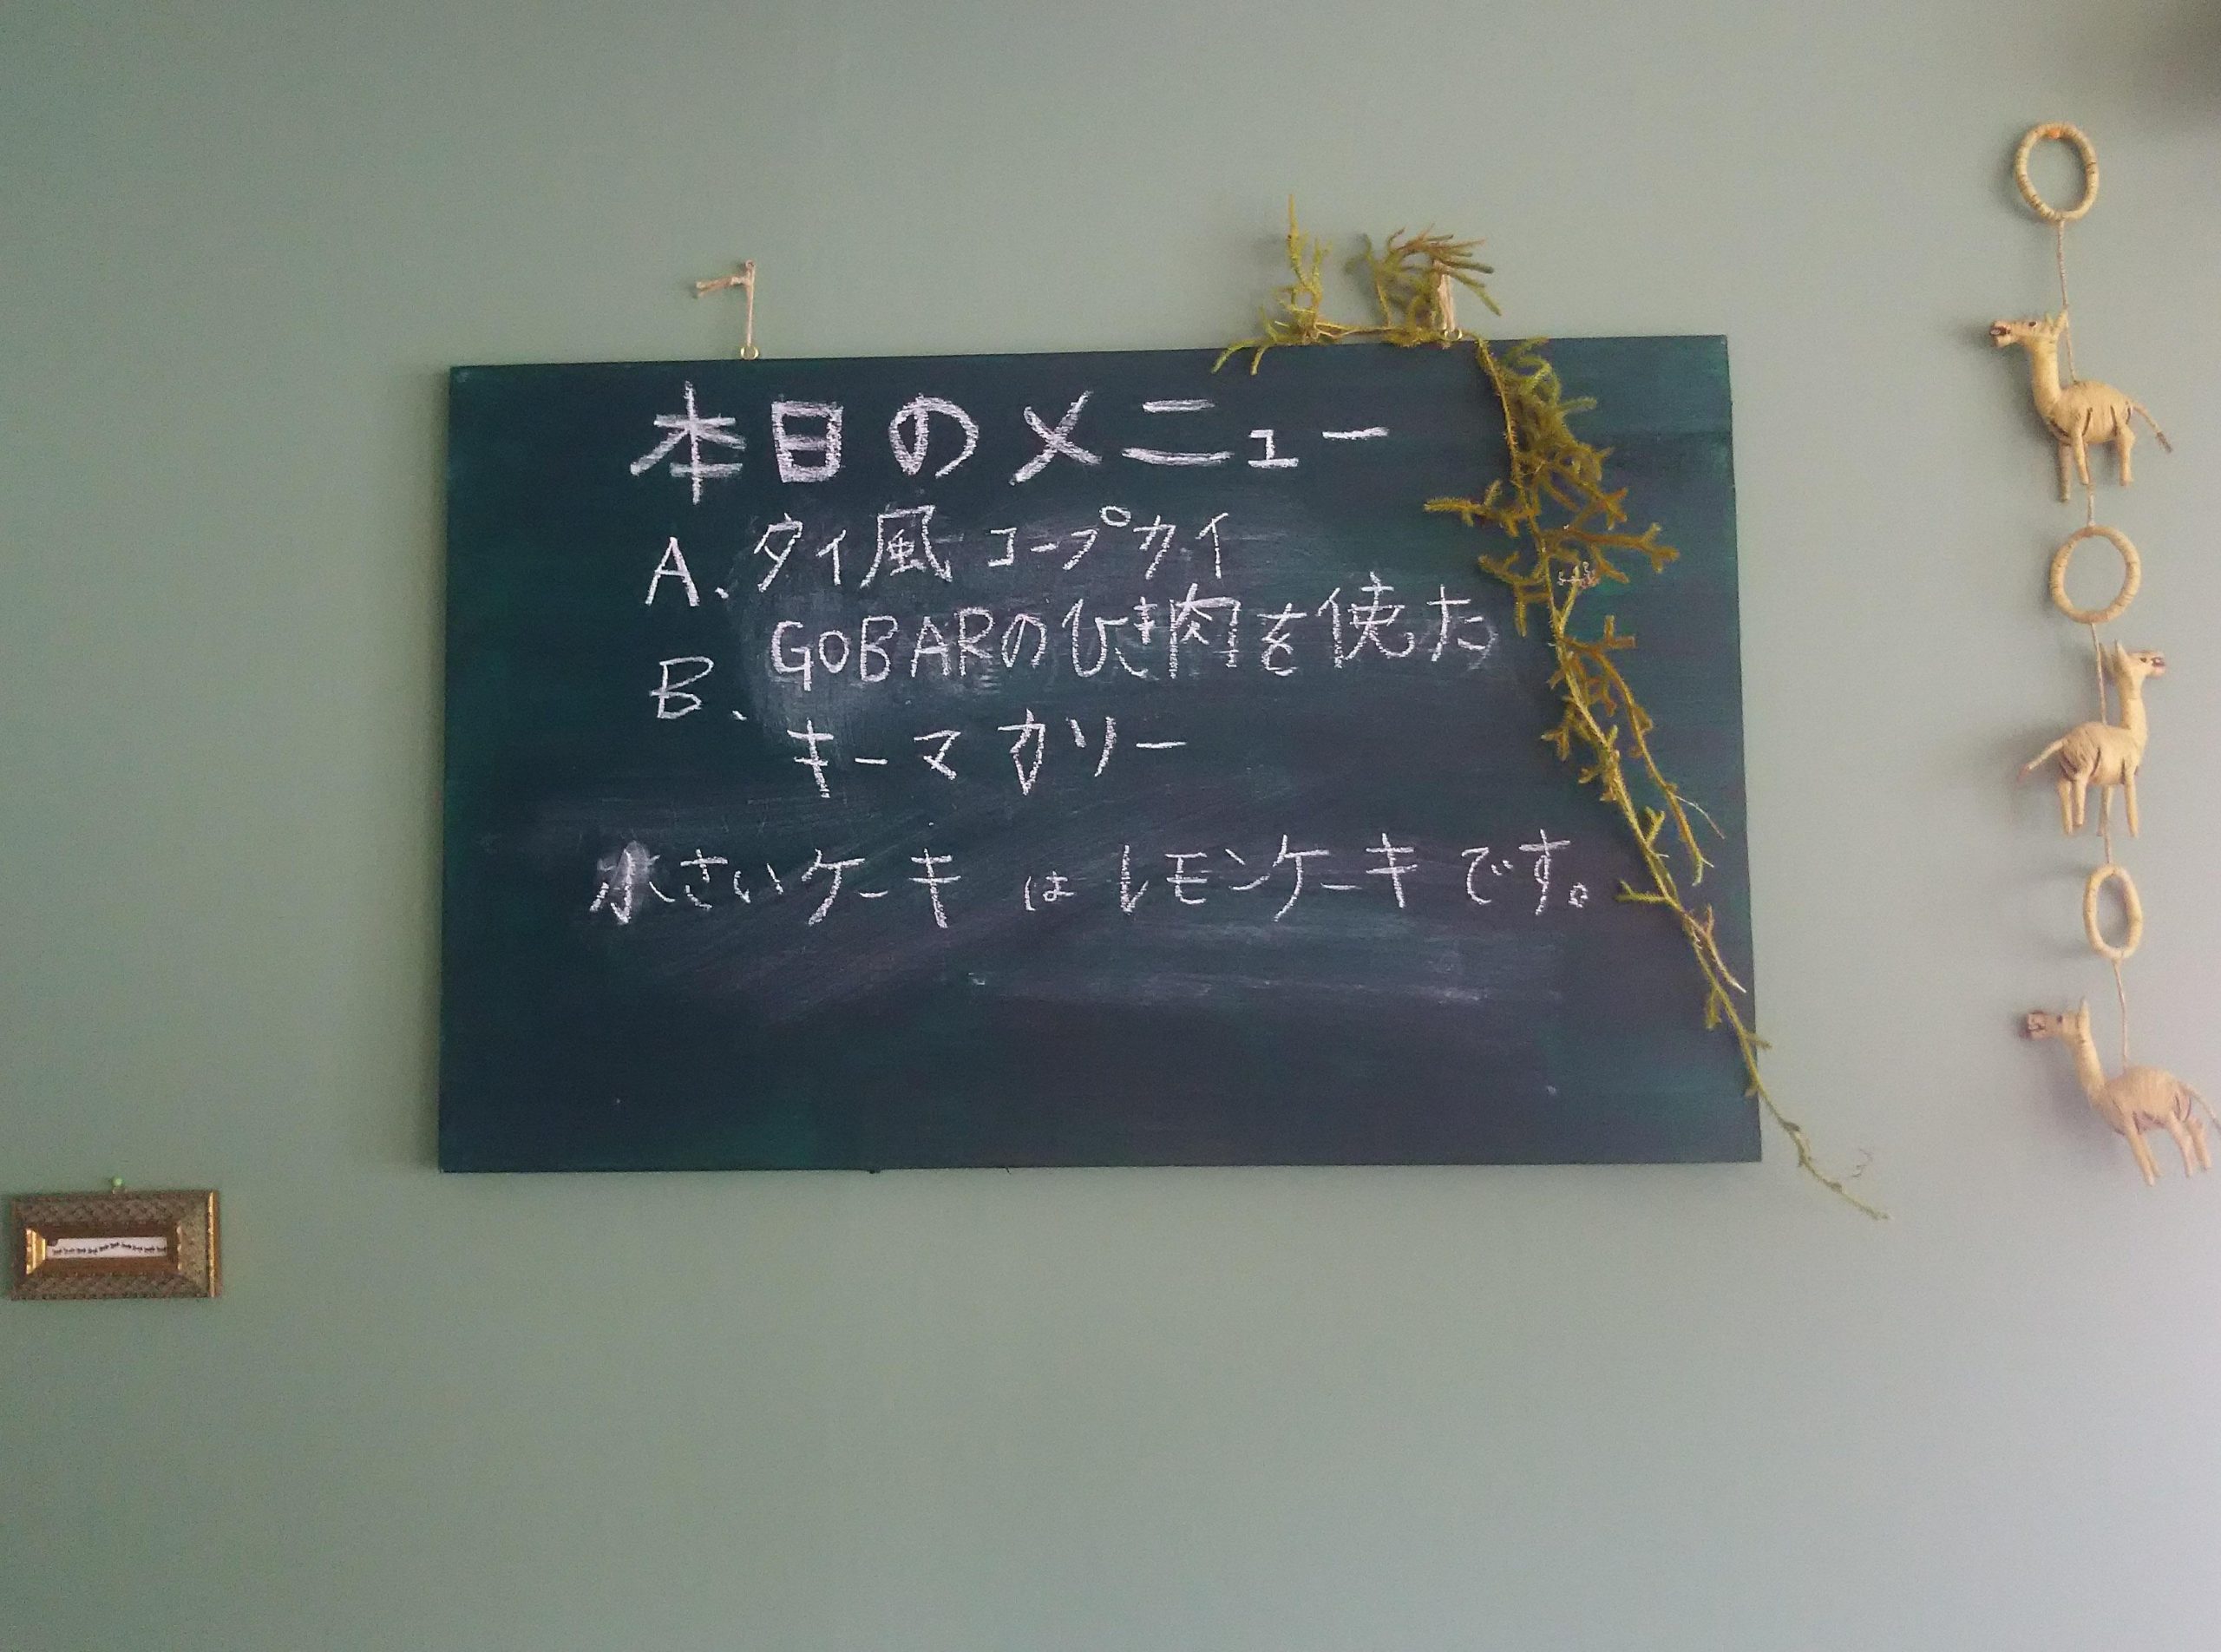 本日のメニュー
A、タイ風コープカイ
B、GOBARのひき肉を使た
キーマカリー
小さいケーキはレモンケーキです。